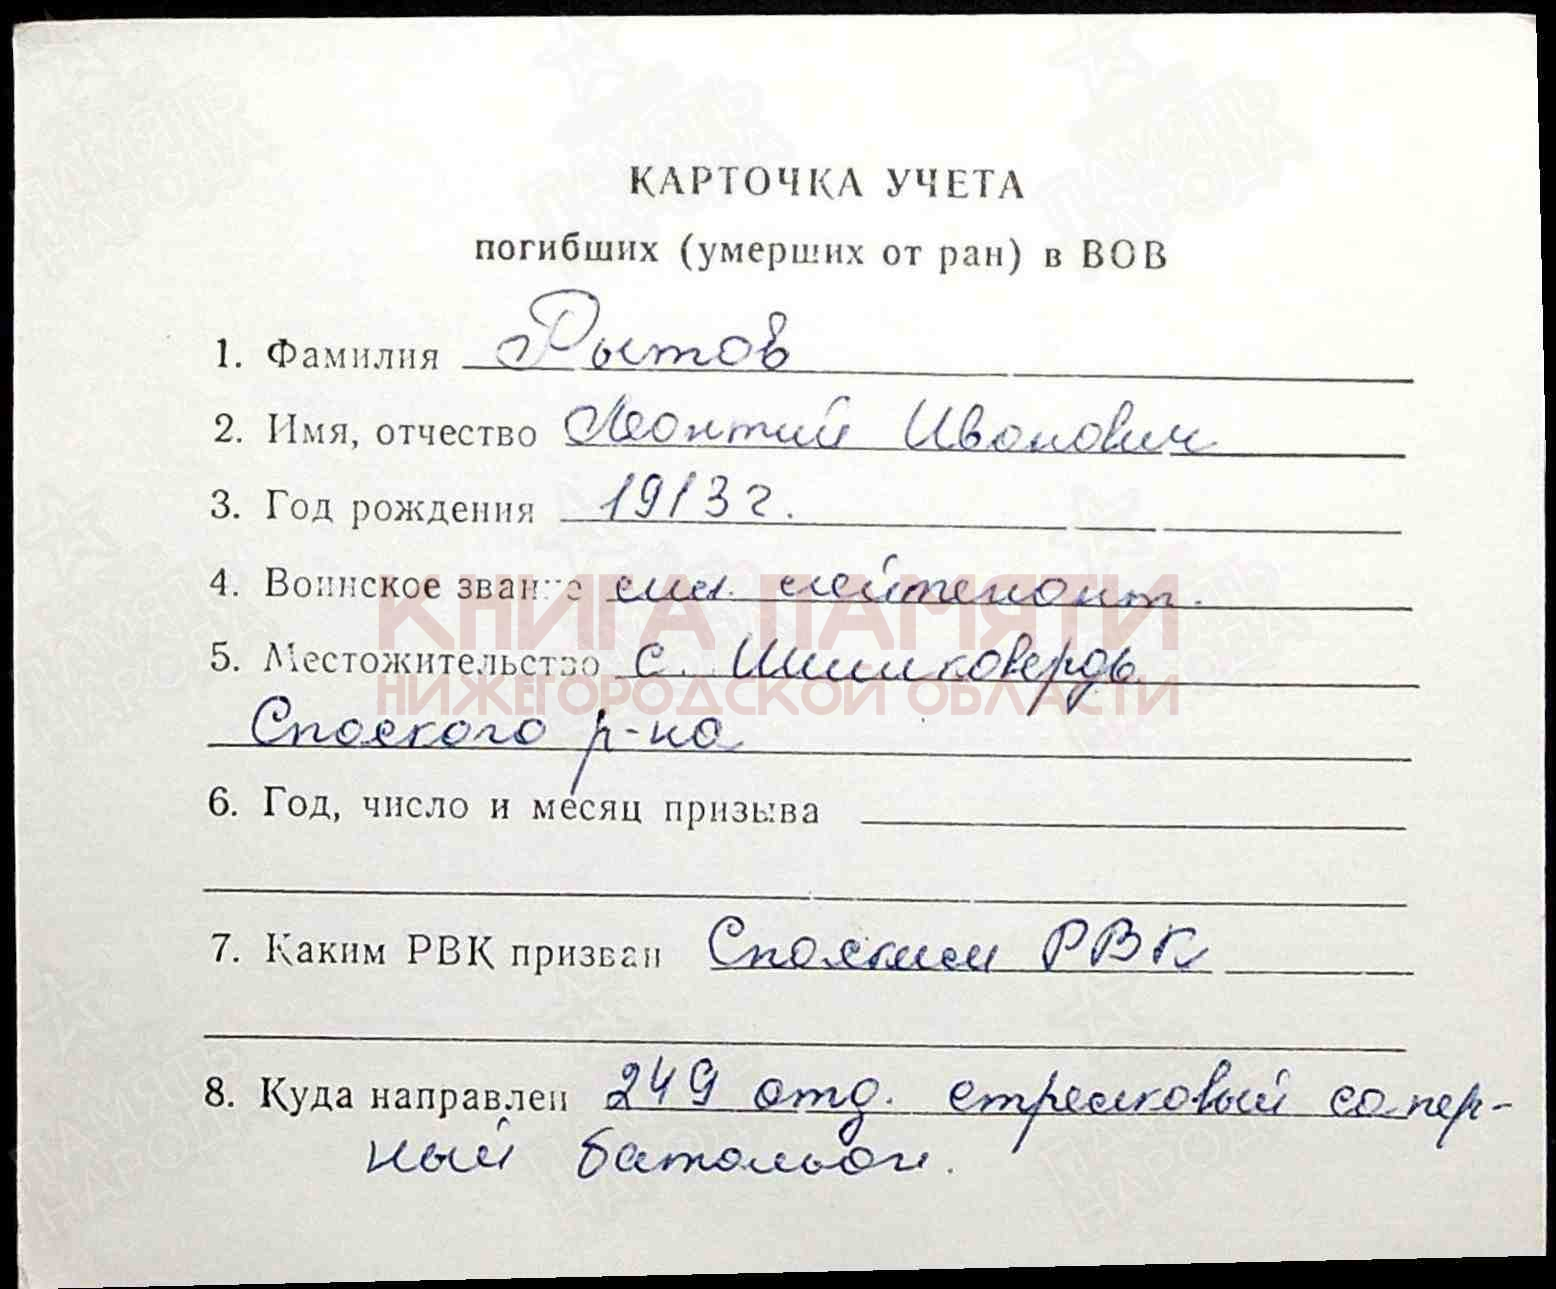 КАРТОЧКА УЧЕТА
погибших (умерших от ран) в ВОВ
1. Фамилия Рытов
2. Имя, отчество Леонтий Иванович
3. Год рождения 1913 г.
4. Воинское звание мл. лейтенант.
5. Местожительство с. Шишковердь
Спасского р-на
6. Год, число и месяц призыва
7. Каким РВК призван Спасским РВК
8. Куда направлен 249 отд. стрелковый сапер-
ный батальон.
КНИГА ПАМЯТИ
НИЖЕГОРОДСКОЙ ОБЛАСТИ
ПАМЯТЬ
НАРОДА